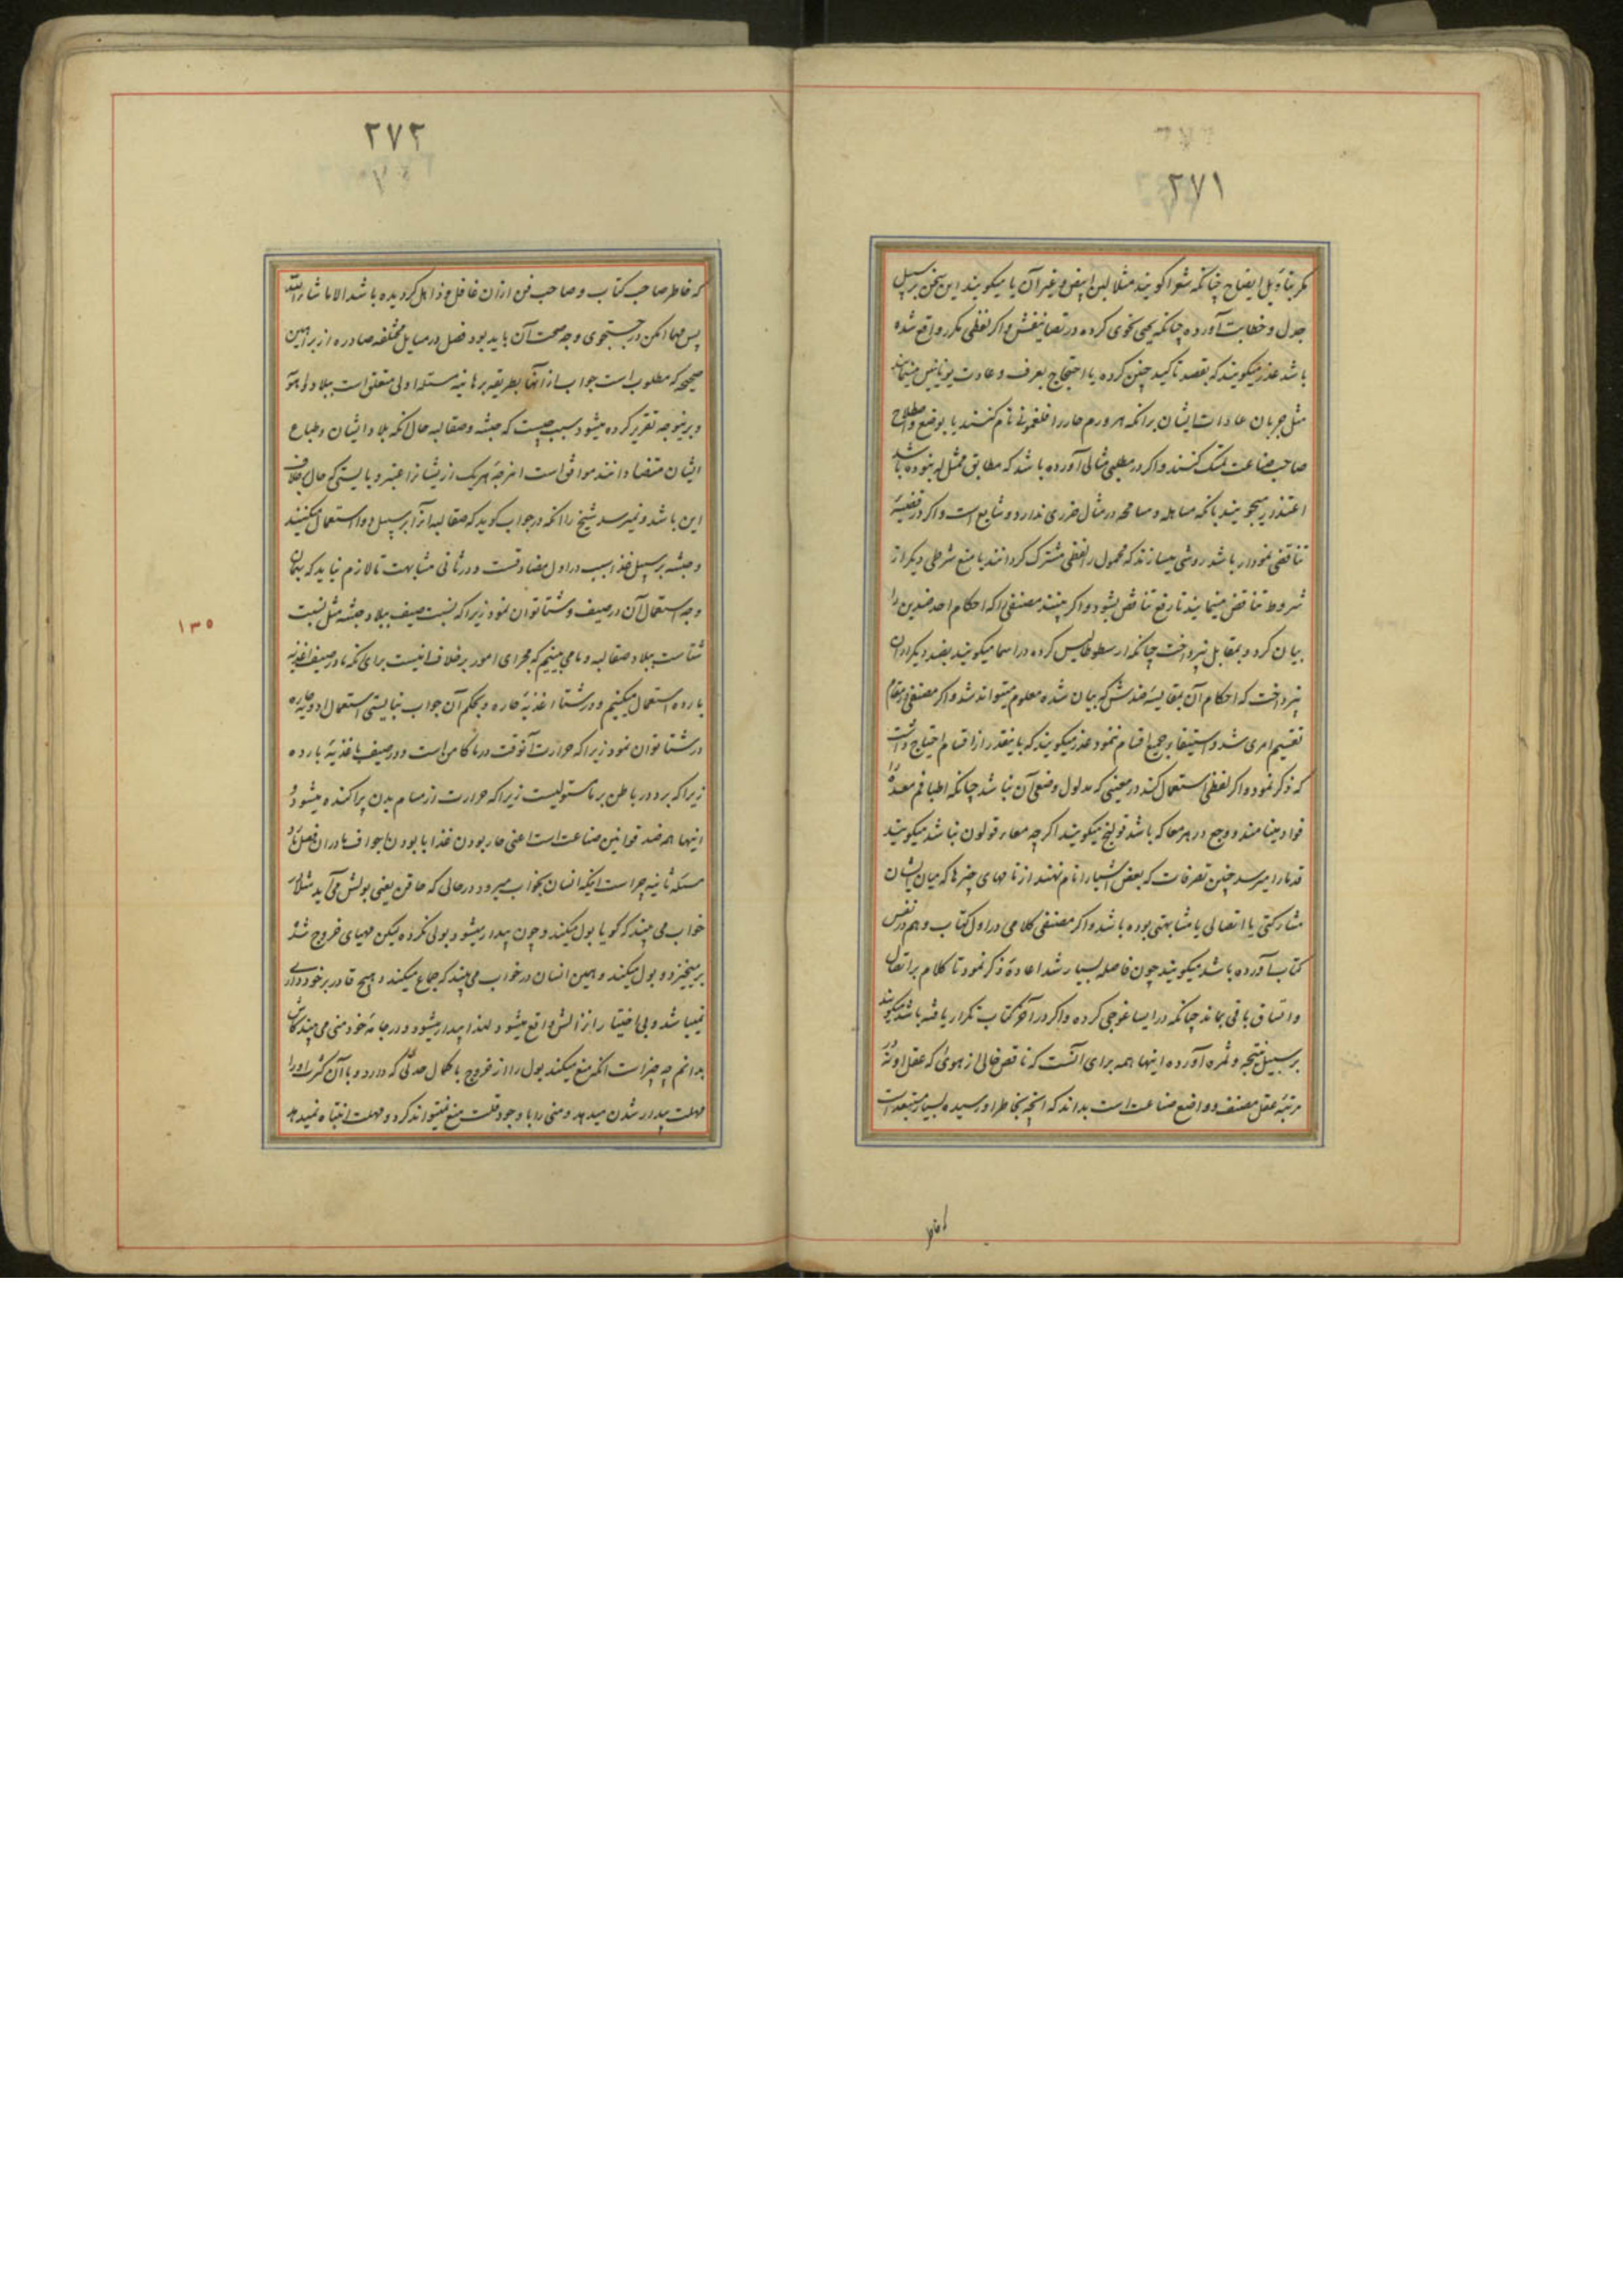 ۲۷۱
مکر بتأویل ایضاح چنانکه شعرا کویند مثلا لبن ابیض و غیر آن یا میکویند این سخن بر سبیل
جدل و خطابت آورده چنانکه یحیی نحوی کرده در تصانیفش و اکر لفظی مکرر واقع شده
باشد عذر میکویند که بقصد تاکید چنین کرده یا احتجاج بعرف و عادت یونانیین مینمایند
مثل جریان عادات ایشان برانکه هر ورم حار را فلغمونی نام کنند یا بوضع و اصطلاح
صاحب صناعت تمسک کنند و اکر در مطلبی مثالی آورده باشد که مطابق ممثل له نبوده باشد
اعتذار میجویند بانکه مساهله و مسامحه در مثال ضرری ندارد و شایع است و اکر در قضیهٔ
تناقضی نمودار باشد روشی میسازند که محمول را لفظی مشترک کردانند یا منع شرطی دیکر از
شروط تناقض مینمایند تا رفع تناقض بشود و اکر ببینند مصنفی را که احکام احد ضدین را
بیان کرد و بمقابل نپرداخت چنانکه ارسطوطالیس کرده در اسما میکویند بضد دیکر ازان
نپرداخت که احکام آن بمقایسهٔ ضدش که بیان شده معلوم میتواند شد و اکر مصنفی در مقام
تقسیم امری شد و استیفاء جمیع اقسام ننمود عذر میکویند که باینقدر از اقسام احتیاج داشت
که ذکر نمود و اکر لفظی استعمال کند در معنیی که مدلول وضعی آن نباشد چنانکه اطبا فم معده را
فواد مینامند و وجع در هر معا که باشد قولنج میکویند اکرچه معاء قولون نباشد میکویند
قدما را میرسد چنین تصرفات که بعض اشیا را نام نهند از نامهای چیزها که میان ایشان
مشارکتی یا اتصالی یا مشابهتی بوده باشد و اکر مصنفی کلامی در اول کتاب و هم در نفس
کتاب آورده باشد میکویند چون فاصله بسیار شد اعادهٔ ذکر نمود تا کلام بر اتصال
و اتساق باقی بماند چنانکه در ایساغوجی کرده و اکر در آخر کتاب تکرار یافته باشد میکویند
بر سبیل نتیجه و ثمره آورده اینها همه برای آنست که ناقص خالی از هوی که عقل او نه
مرتبهٔ عقل مصنف و واضع صناعت است بداند که انچه بخاطر او رسیده بسیار مستبعد است
۲۷۲
که خاطر صاحب کتاب و صاحب فن ازان غافل و ذاهل کردیده باشد الا ما شاء الله
پس مهما امکن در جستجوی وجه صحت آن باید بود فصل در مسایل مختلفه صادره از براهین
صحیحه که مطلوب است جواب از آنها بطریقه برهانیه مسئله اولی متعلق است ببلاد و اهویه
و برینوجه تقریر کرده میشود سبب چیست که حبشه و صقالبه حال انکه بلاد ایشان و طباع
ایشان متضادانند موافق است امزجهٔ هریک از ایشانرا عنبر و بایستی که حال بخلاف
این باشد و نمیرسد شیخ را انکه در جواب کوید که صقالبه انرا بر سبیل دوا استعمال میکنند
و حبشه بر سبیل غذا سبب در اول مضادتست و در ثانی مشابهت تا لازم نیاید که بهمان
وجه استعمال آن در صیف و شتا توان نمود زیرا که نسبت صیف ببلاد حبشه مثل نسبت
شتاست ببلاد صقالبه و ما می بینیم که مجرای امور بر خلاف انیست برای انکه ما در صیف اغذیه
بارده استعمال میکنیم و در شتا اغذیهٔ حاره و بحکم آن جواب نبایستی استعمال ادویهٔ حاره
در شتا توان نمود زیرا که حرارت آنوقت در ما کامن است و در صیف باغذیهٔ بارده
زیرا که برد در باطن بر ما مستولیست زیرا که حرارت از مسام بدن پراکنده میشود و
اینها همه ضد قوانین صناعت است اعنی حار بودن غذا یا بودن ما بجواف ما دران فصل بارد
مسئله ثانیه چراست اینکه انسان بخواب میرود در حالی که حاقن یعنی بولش می آید مثلا در
خواب می بیند که کویا بول میکند و چون بیدار میشود بولی نکرده لیکن مهیای خروج شده
برمیخیزد و بول میکند و همین انسان در خواب می بیند که جماع میکند و هیچ قادر بر خودداری
نمیباشد و بی اختیار انزالش واقع میشود لهذا بیدار میشود و در جامهٔ خود منی می بیند کاش
بدانم چه چیز است انکه منع میکند بول را از خروج با کمال حدتی که دارد و با آن کثرت او را
مهلت بیدار شدن میدهد و منی را با وجود قلت منع نمیتواند کرد و مهلت انتباه نمیدهد
۱۳۵